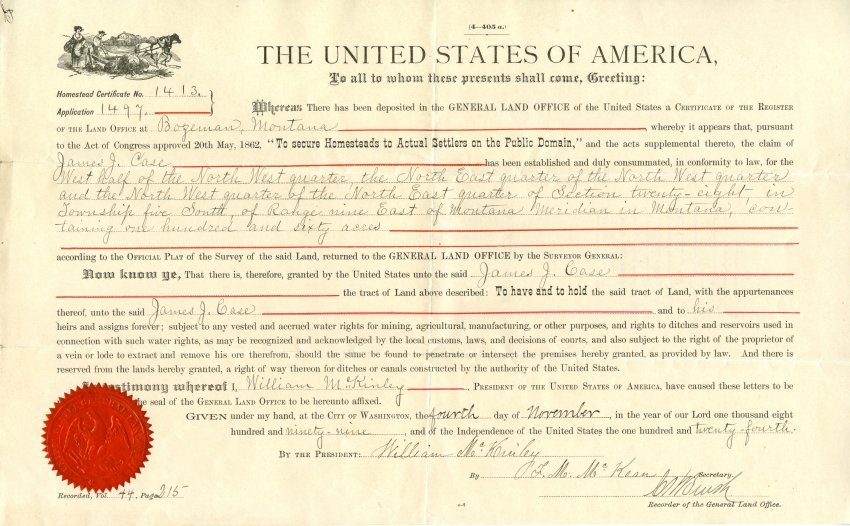 (4—405 a.)
THE UNITED STATES OF AMERICA,
To all to whom these presents shall come, Greeting:
Homestead Certificate No. 1413.
Application 1497.
Whereas There has been deposited in the GENERAL LAND OFFICE of the United States a CERTIFICATE OF THE REGISTER
OF THE LAND OFFICE AT Bozeman, Montana, whereby it appears that, pursuant
to the Act of Congress approved 20th May, 1862, "To secure Homesteads to Actual Settlers on the Public Domain," and the acts supplemental thereto, the claim of
James J. Case has been established and duly consummated, in conformity to law, for the
West half of the North West quarter, the North East quarter of the North West quarter
and the North West quarter of the North East quarter of Section twenty-eight, in
Township five South, of Range nine East of Montana Meridian in Montana, con-
taining one hundred and sixty acres
according to the OFFICIAL PLAT of the Survey of the said Land, returned to the GENERAL LAND OFFICE by the SURVEYOR GENERAL:
Now know ye, That there is, therefore, granted by the United States unto the said James J. Case
the tract of Land above described: To have and to hold the said tract of Land, with the appurtenances
thereof, unto the said James J. Case and to his
heirs and assigns forever; subject to any vested and accrued water rights for mining, agricultural, manufacturing, or other purposes, and rights to ditches and reservoirs used in
connection with such water rights, as may be recognized and acknowledged by the local customs, laws, and decisions of courts, and also subject to the right of the proprietor of
a vein or lode to extract and remove his ore therefrom, should the same be found to penetrate or intersect the premises hereby granted, as provided by law. And there is
reserved from the lands hereby granted, a right of way thereon for ditches or canals constructed by the authority of the United States.
In testimony whereof I, William McKinley, PRESIDENT OF THE UNITED STATES OF AMERICA, have caused these letters to be
the seal of the GENERAL LAND OFFICE to be hereunto affixed.
GIVEN under my hand, at the CITY OF WASHINGTON, the fourth day of November, in the year of our Lord one thousand eight
hundred and ninety-nine, and of the Independence of the United States the one hundred and twenty-fourth.
BY THE PRESIDENT: William McKinley
By F. M. McKean Secretary.
Recorder of the General Land Office.
Recorded, Vol. 44, Page 215